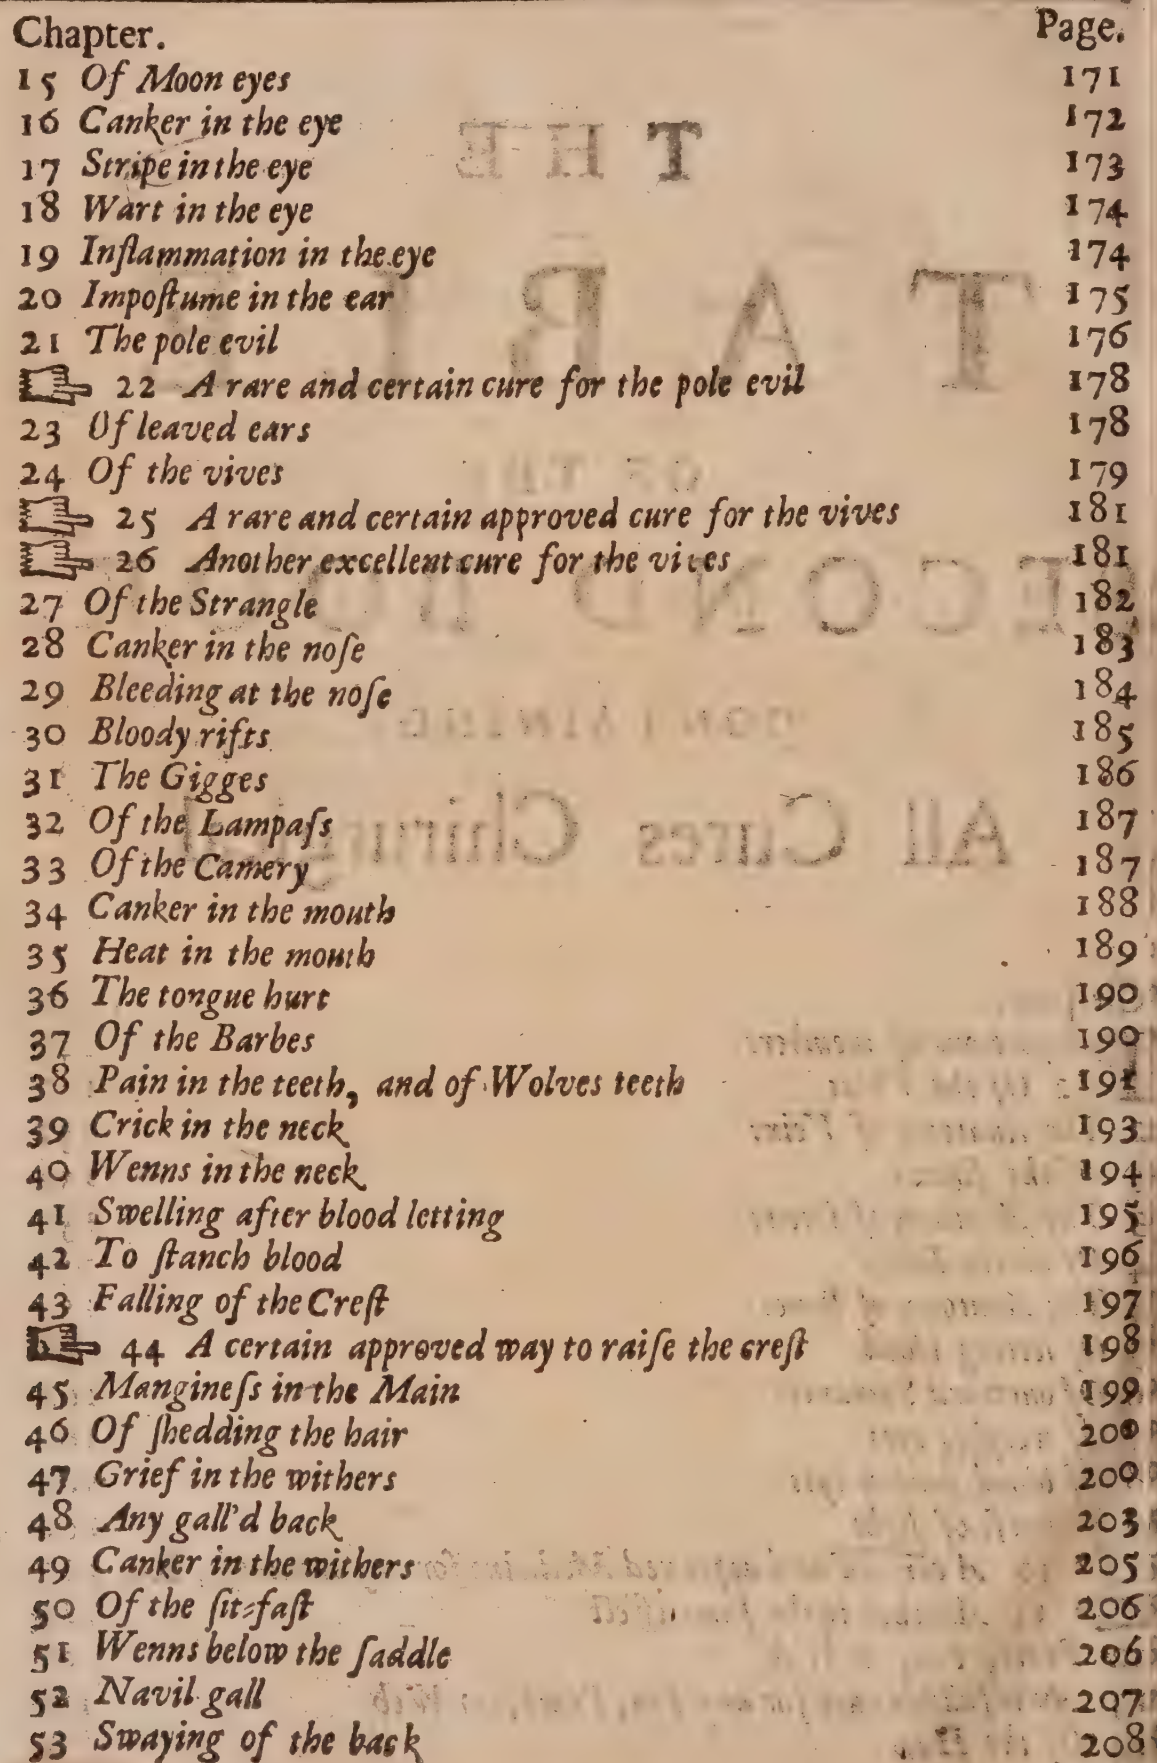 Chapter. Page.
15 Of Moon eyes 171
16 Canker in the eye 172
17 Stripe in the eye 173
18 Wart in the eye 174
19 Inflammation in the eye 174
20 Impoſtume in the ear 175
21 The pole evil 176
☞ 22 A rare and certain cure for the pole evil 178
23 Of leaved ears 178
24 Of the vives 179
☞ 25 A rare and certain approved cure for the vives 181
☞ 26 Another excellent cure for the vives 181
27 Of the Strangle 182
28 Canker in the noſe 183
29 Bleeding at the noſe 184
30 Bloody rifts 185
31 The Gigges 186
32 Of the Lampaſs 187
33 Of the Camery 187
34 Canker in the mouth 188
35 Heat in the mouth 189
36 The tongue hurt 190
37 Of the Barbes 190
38 Pain in the teeth, and of Wolves teeth 191
39 Crick in the neck 193
40 Wenns in the neck 194
41 Swelling after blood letting 195
42 To ſtanch blood 196
43 Falling of the Creſt 197
☞ 44 A certain approved way to raiſe the creſt 198
45 Mangineſs in the Main 199
46 Of ſhedding the hair 200
47 Grief in the withers 200
48 Any gall'd back 203
49 Canker in the withers 205
50 Of the ſit-faſt 206
51 Wenns below the ſaddle 206
52 Navil gall 207
53 Swaying of the back 208